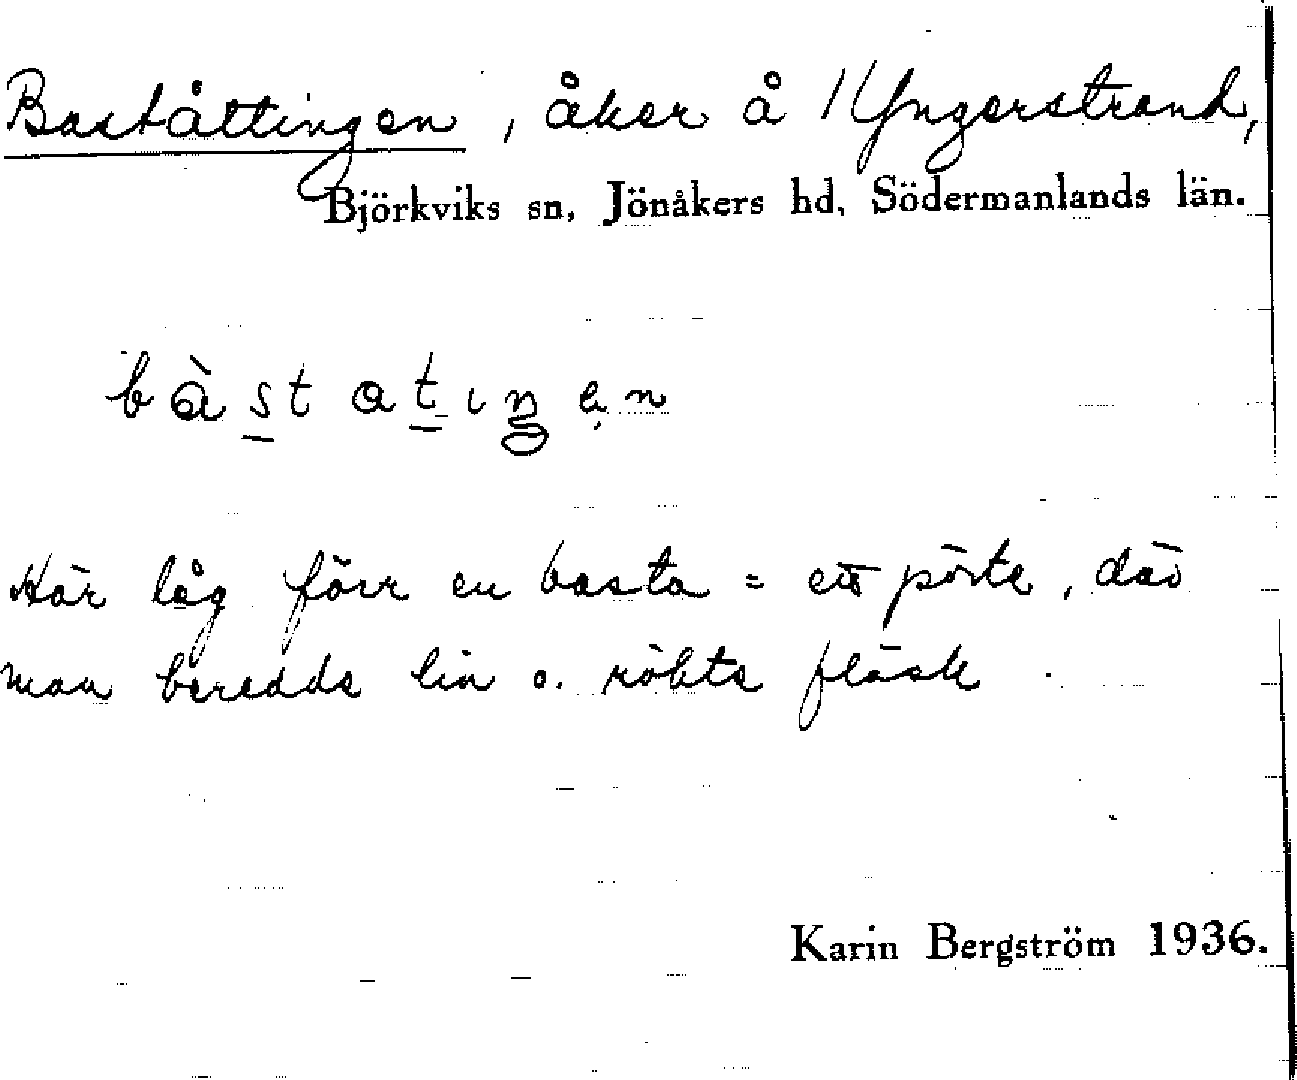 Baståttingen, åker å 1 Yngerstrand,
Björkviks sn, Jönåkers hd, Södermanlands län.
bàstatiŋen
Här låg förr en basta = ett pörte, där
man beredde lin o. rökte fläsk.
Karin Bergström 1936.